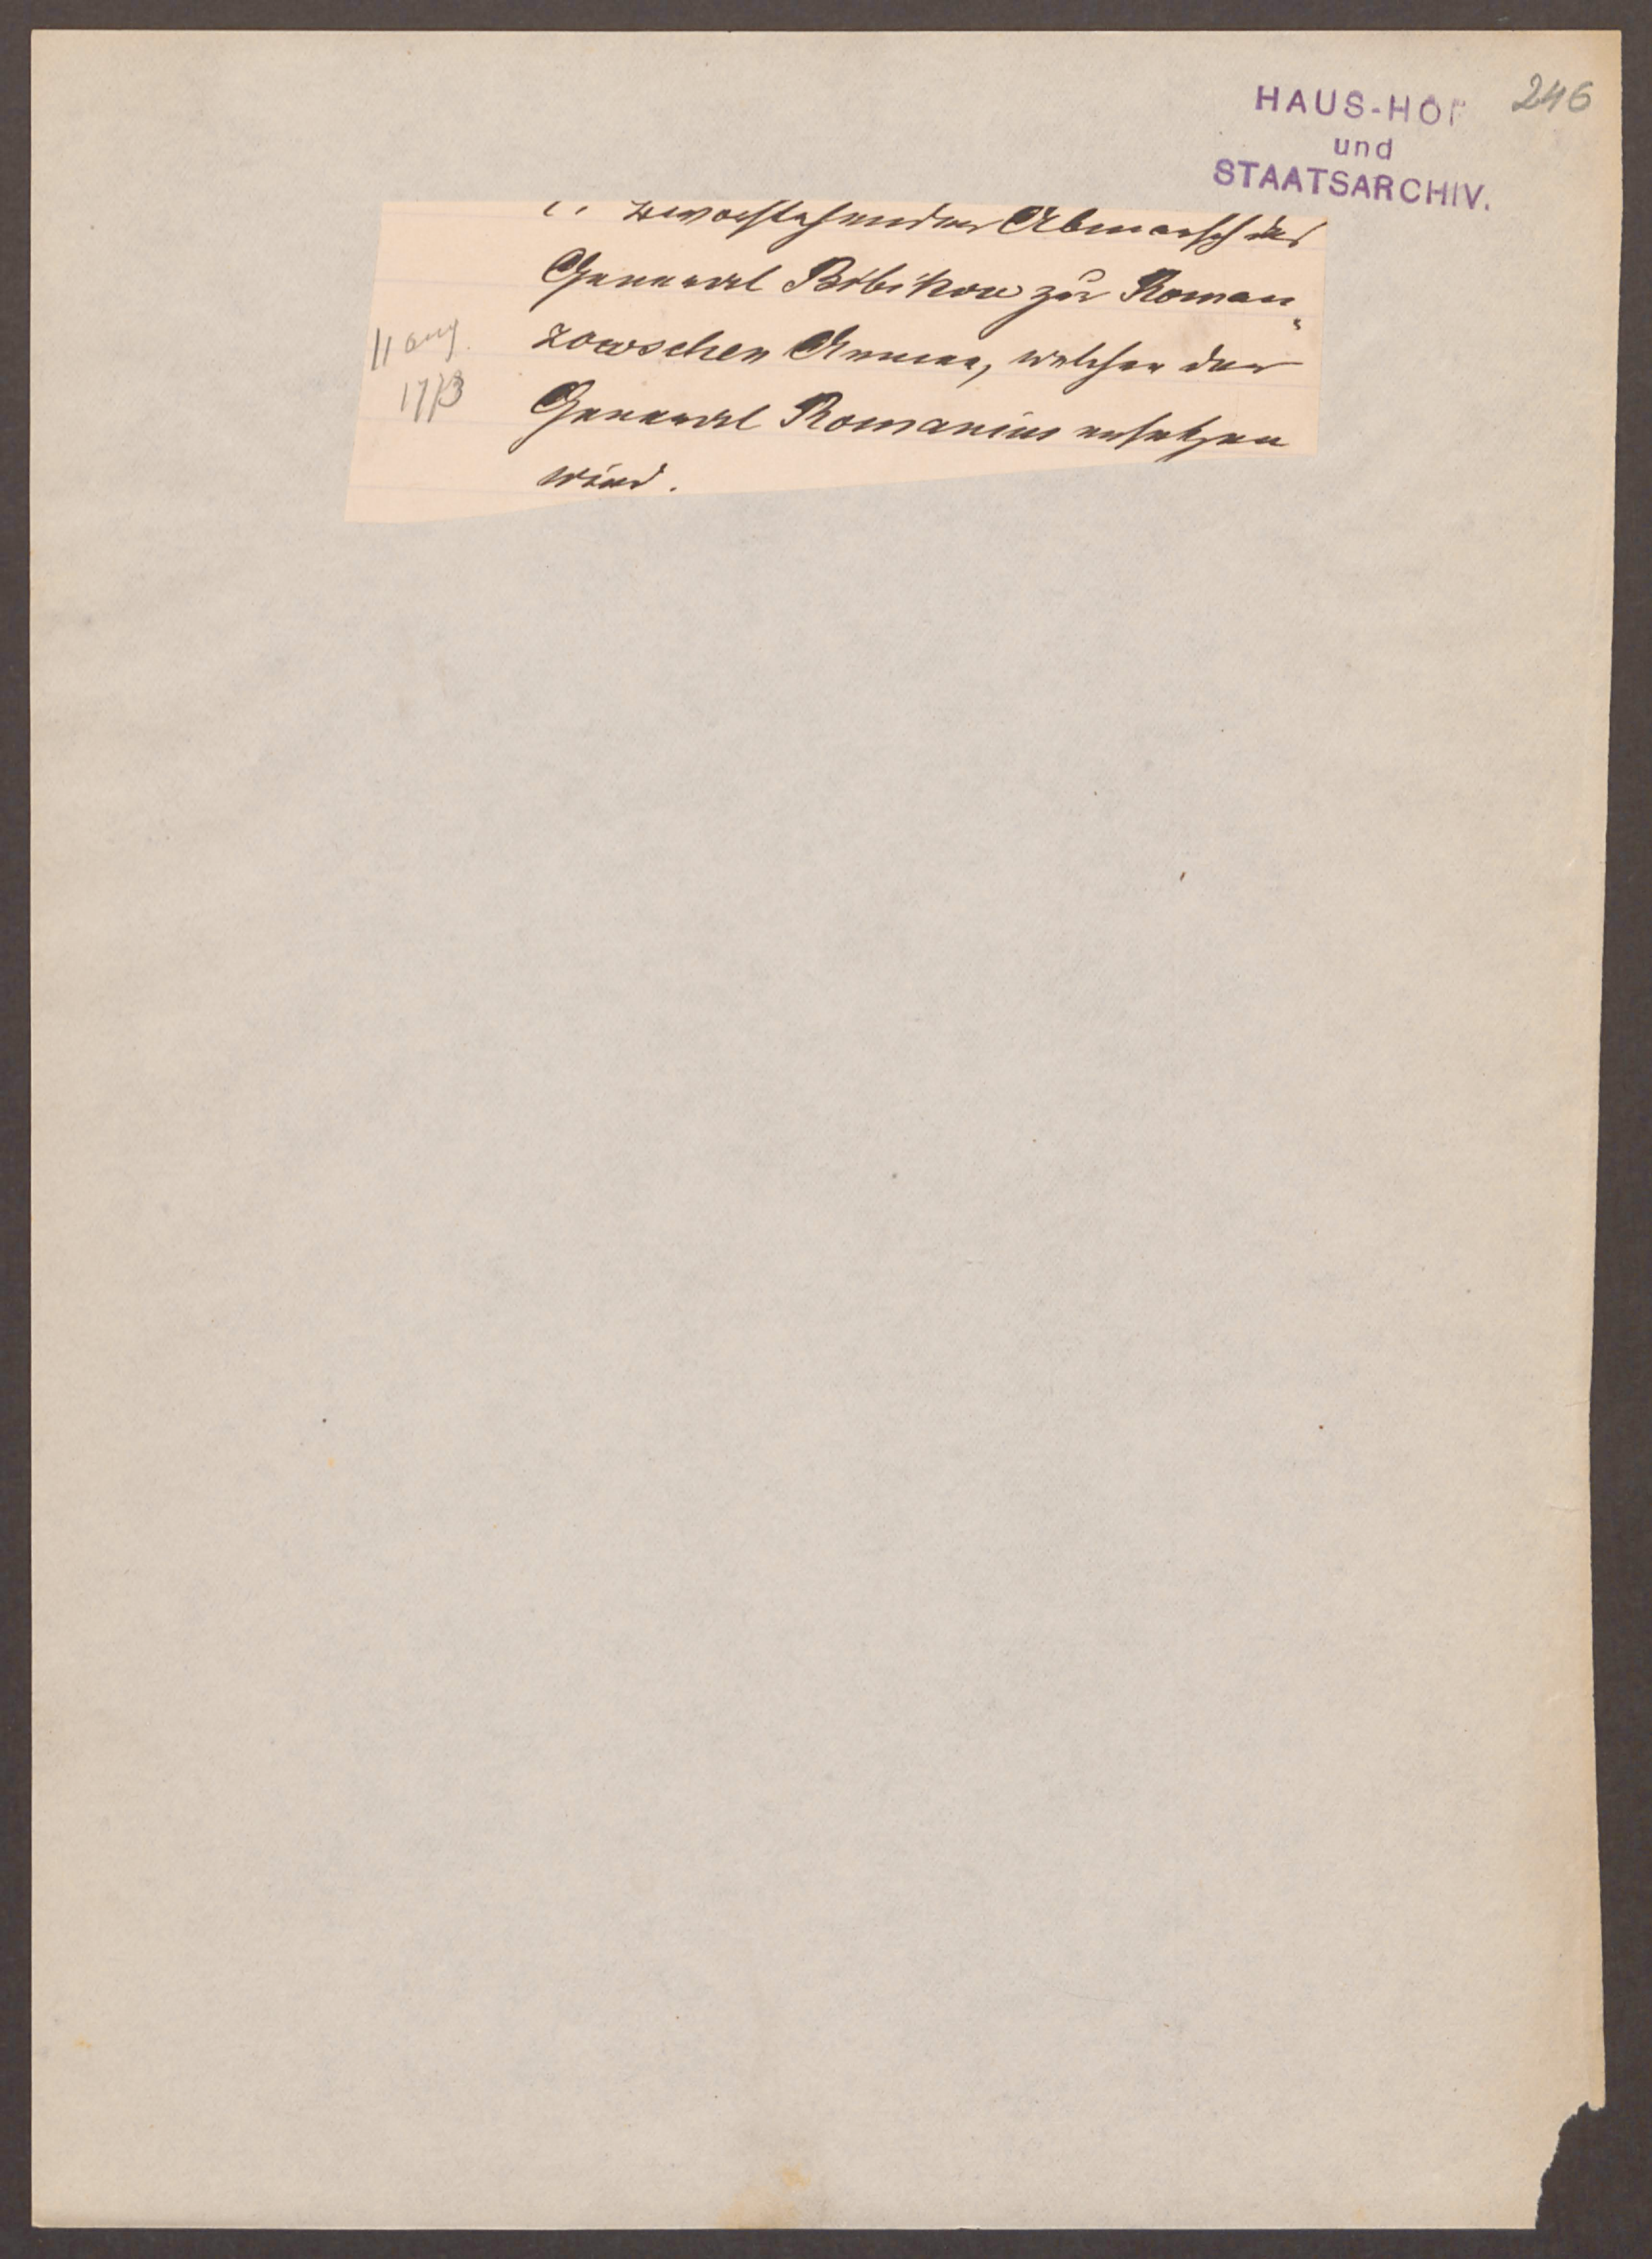 246
HAUS-HOF
und
STAATSARCHIV.
bevorstehender Abmarsch des
General Bibikow zur Roman„
zowschen Armee, welchen der
General Romanius ersetzen
wird.
11 aug.
1773